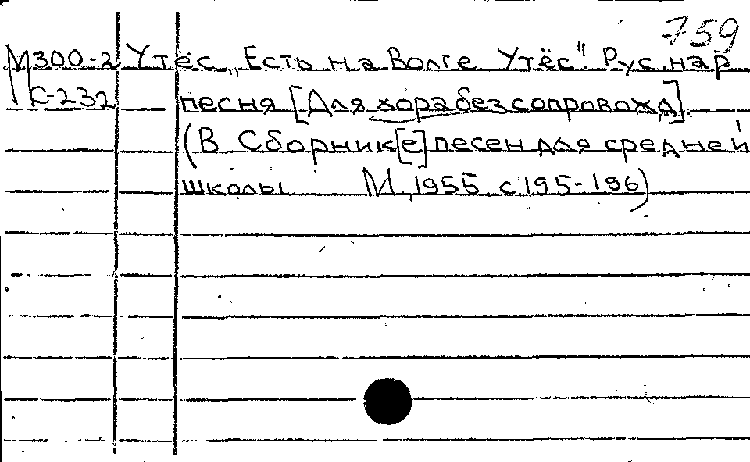 759
М300-2 Утёс „Есть на Волге Утёс" Рус. нар
К-232 песня [Для хора без сопровожд.]
(В Сборник[е] песен для средней
школы М., 1955 с. 195-196)